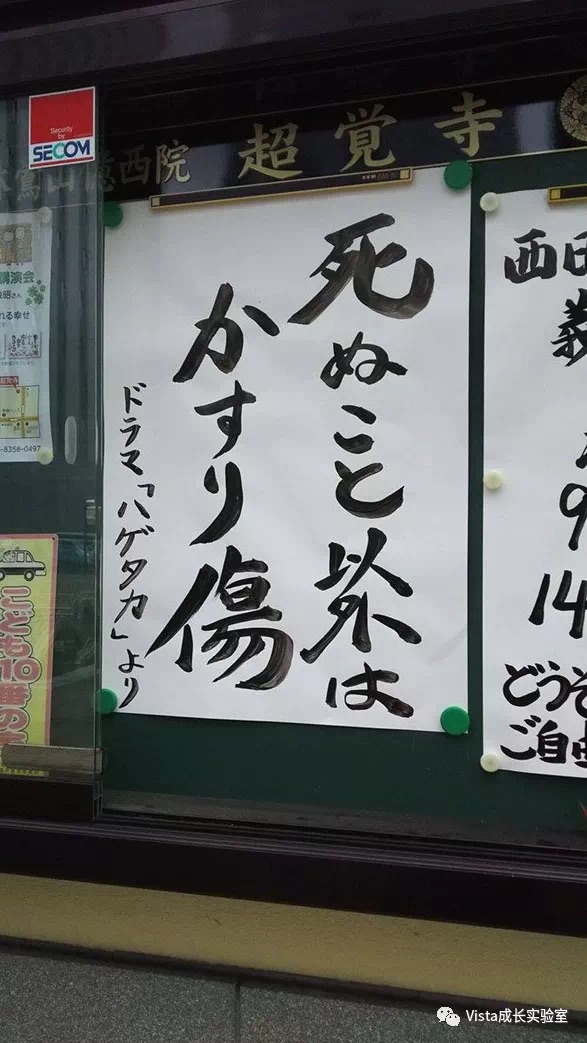 超覚寺
死ぬこと以外は
かすり傷
ドラマ「ハゲタカ」より
Security
by
SECOM
西院
講演会
れる幸せ
-8358-0497
こども110番の
西田
義
9
14
どうぞ
ご自由
Vista成长实验室